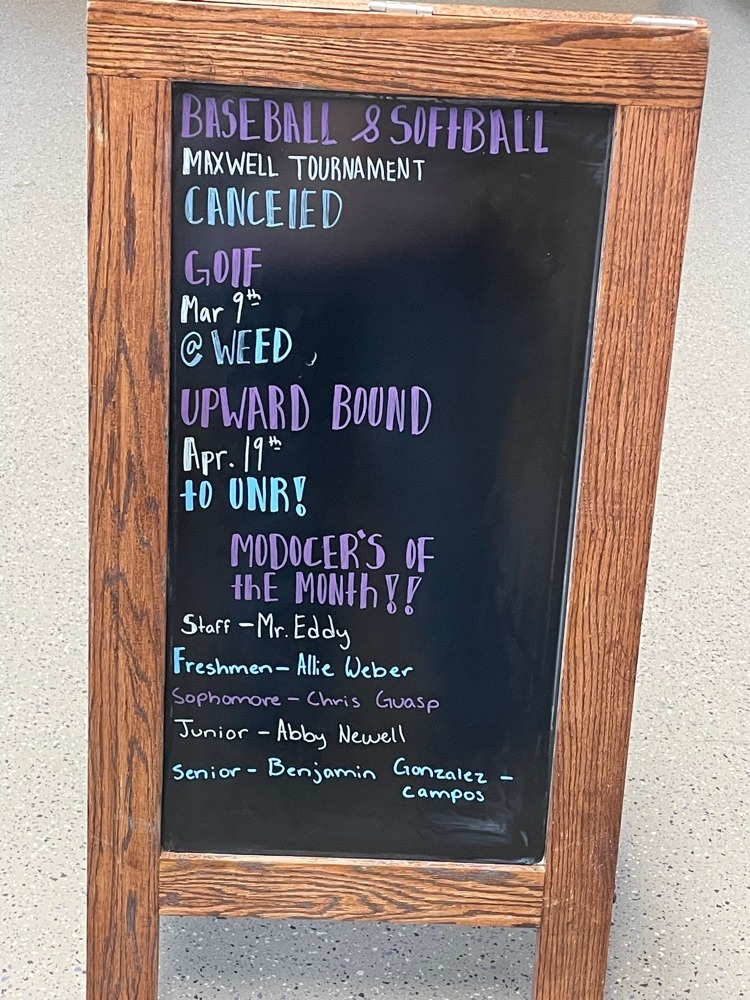 BASEBALL & SOFTBALL
MAXWELL TOURNAMENT
CANCElED
GOlF
Mar 9th
@ WEED
UPWARD BOUND
Apr. 19th
tO UNR!
MODOCER'S OF
thE MONth!!
Staff - Mr. Eddy
Freshmen - Allie Weber
Sophomore - Chris Guasp
Junior - Abby Newell
Senior - Benjamin Gonzalez -
Campos